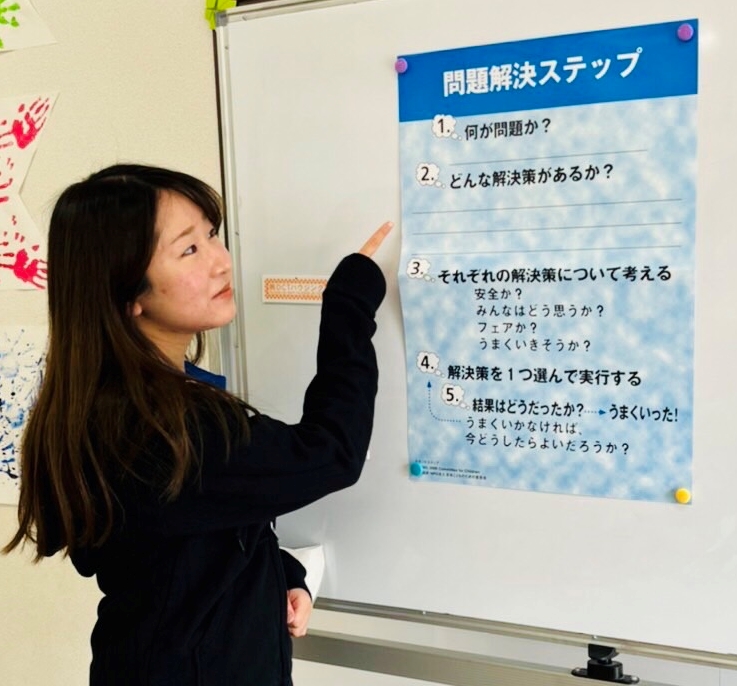 問題解決ステップ
1. 何が問題か？
2. どんな解決策があるか？
3. それぞれの解決策について考える
安全か？
みんなはどう思うか？
フェアか？
うまくいきそうか？
4. 解決策を1つ選んで実行する
5. 結果はどうだったか？ うまくいった!
うまくいかなければ、
今どうしたらよいだろうか？